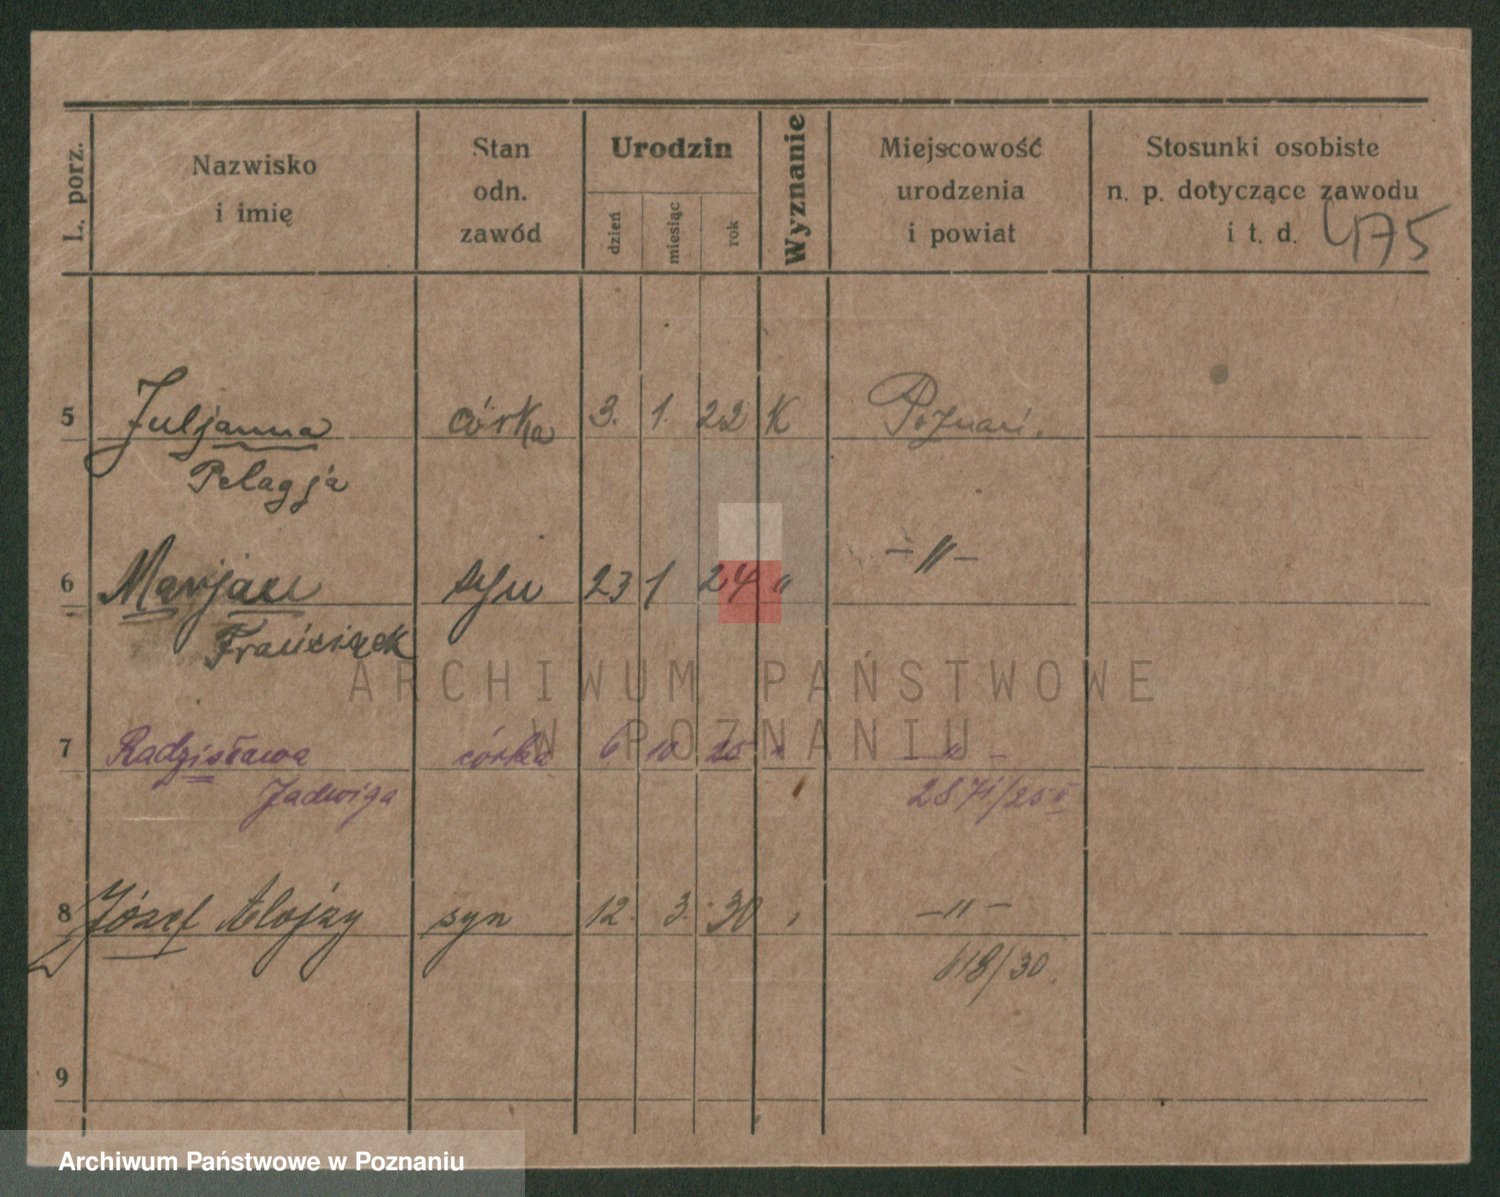 L. porz.
Nazwisko
i imię
Stan
odn.
zawód
Urodzin
dzień
miesiąc
rok
Wyznanie
Miejscowość
urodzenia
i powiat
Stosunki osobiste
n. p. dotyczące zawodu
i t. d.
475
5 Juljanna córka 3. 1. 22 K Poznań.
Pelagja
6 Marjan syn 23 1 24 " -"-
Franciszek
7 Radzisława córka 6 10 25 " -"-
Jadwiga 2871/25 II
8 Józef Alojzy syn 12. 3. 30 " -"-
618/30.
9
ARCHIWUM PAŃSTWOWE
W POZNANIU
Archiwum Państwowe w Poznaniu